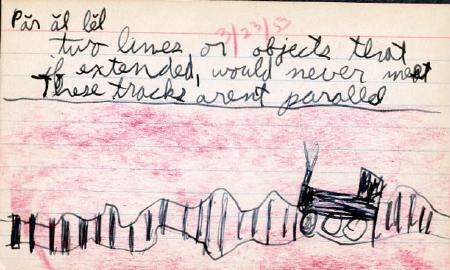 Păr ăl lĕl
3/23/53
two lines, or objects that
if extended, would never meet
These tracks arent parallel